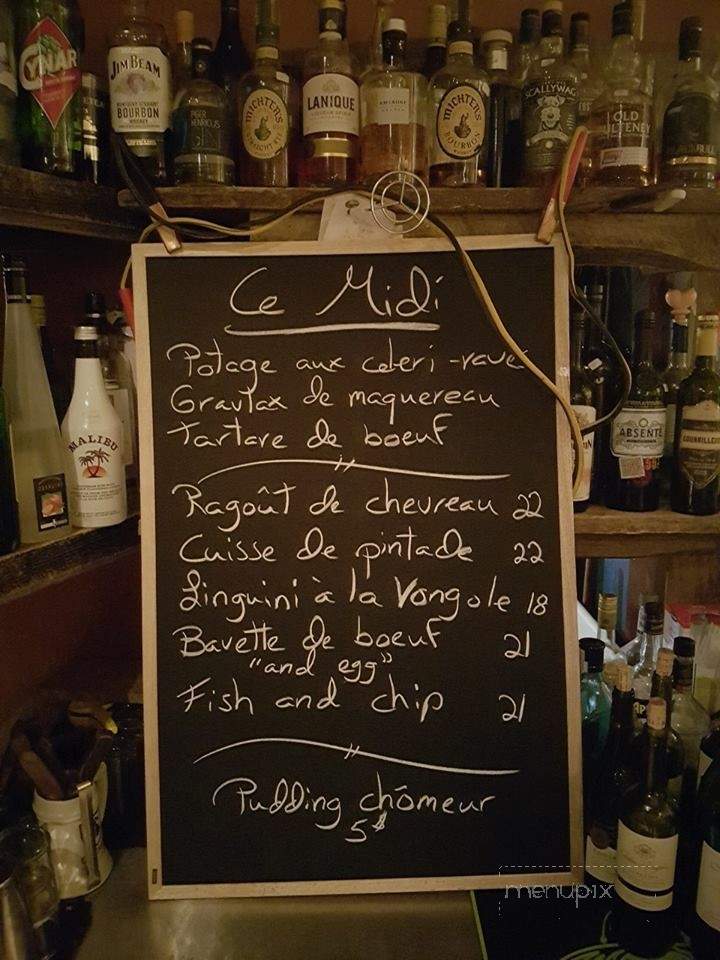 CYNAR
JIM BEAM
BOURBON
MICHTER'S
LANIQUE
MICHTER'S
BOURBON
SCALLYWAG
OLD
PULTENEY
MALIBU
ABSENTE
Ce Midi
Potage aux céleri-rave
Gravlax de maquereau
Tartare de boeuf
Ragoût de chevreau 22
Cuisse de pintade 22
Linguini à la Vongole 18
Bavette de boeuf 21
"and egg"
Fish and chip 21
Pudding chômeur
5$
menupix